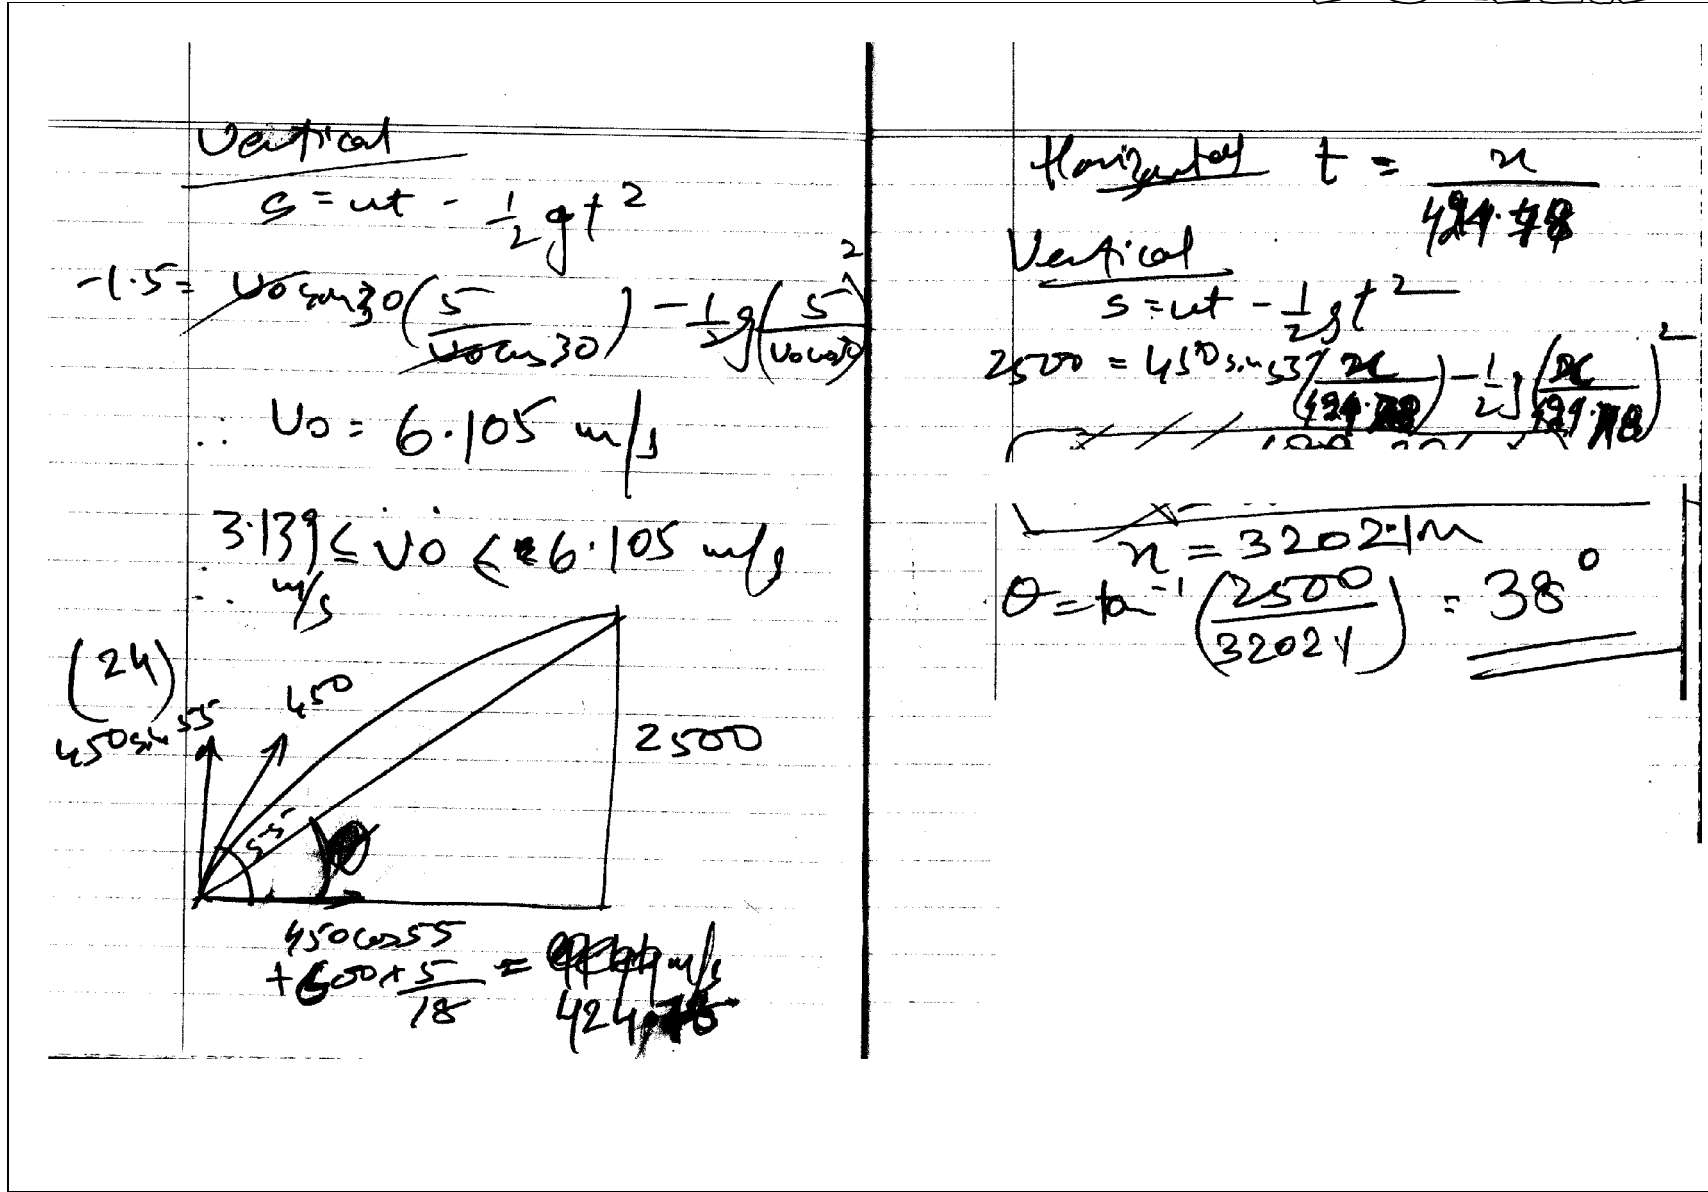 Vertical
s = ut - 1/2 gt²
-1.5 = v0 sin 30 (5 / v0 cos 30) - 1/2 g (5 / v0 cos 30)²
∴ v0 = 6.105 m/s
∴ 3.139 m/s ≤ v0 ≤ 6.105 m/s
(24)
450 sin 55
450
2500
55
θ
450 cos 55
+ 600 × 5/18 = m/s
424.78
Horizontal t = x / 424.78
Vertical
s = ut - 1/2 gt²
2500 = 450 sin 55 (x / 424.78) - 1/2 g (x / 424.78)²
x = 3202.1 m
θ = tan⁻¹ (2500 / 3202.1) = 38°